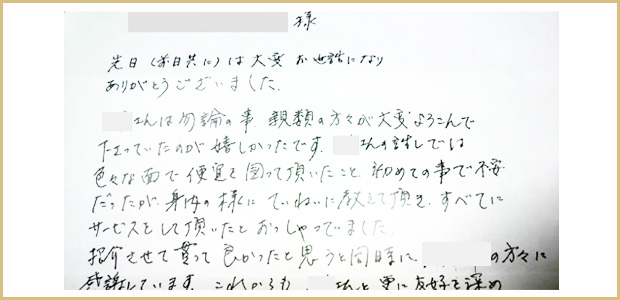 様
先日（前日共に）は大変お世話になり
ありがとうございました。
さんは勿論の事、親類の方々が大変よろこんで
下さっていたのが嬉しかったです。 さんの話しでは
色々な面で便宜を図って頂いたこと、初めての事で不安
だったが、身内の様にていねいに教えて頂き、すべてに
サービスをして頂いたとおっしゃってました。
紹介させて貰って良かったと思うと同時に、 の方々に
感謝しています。これからも さんと更に友好を深め